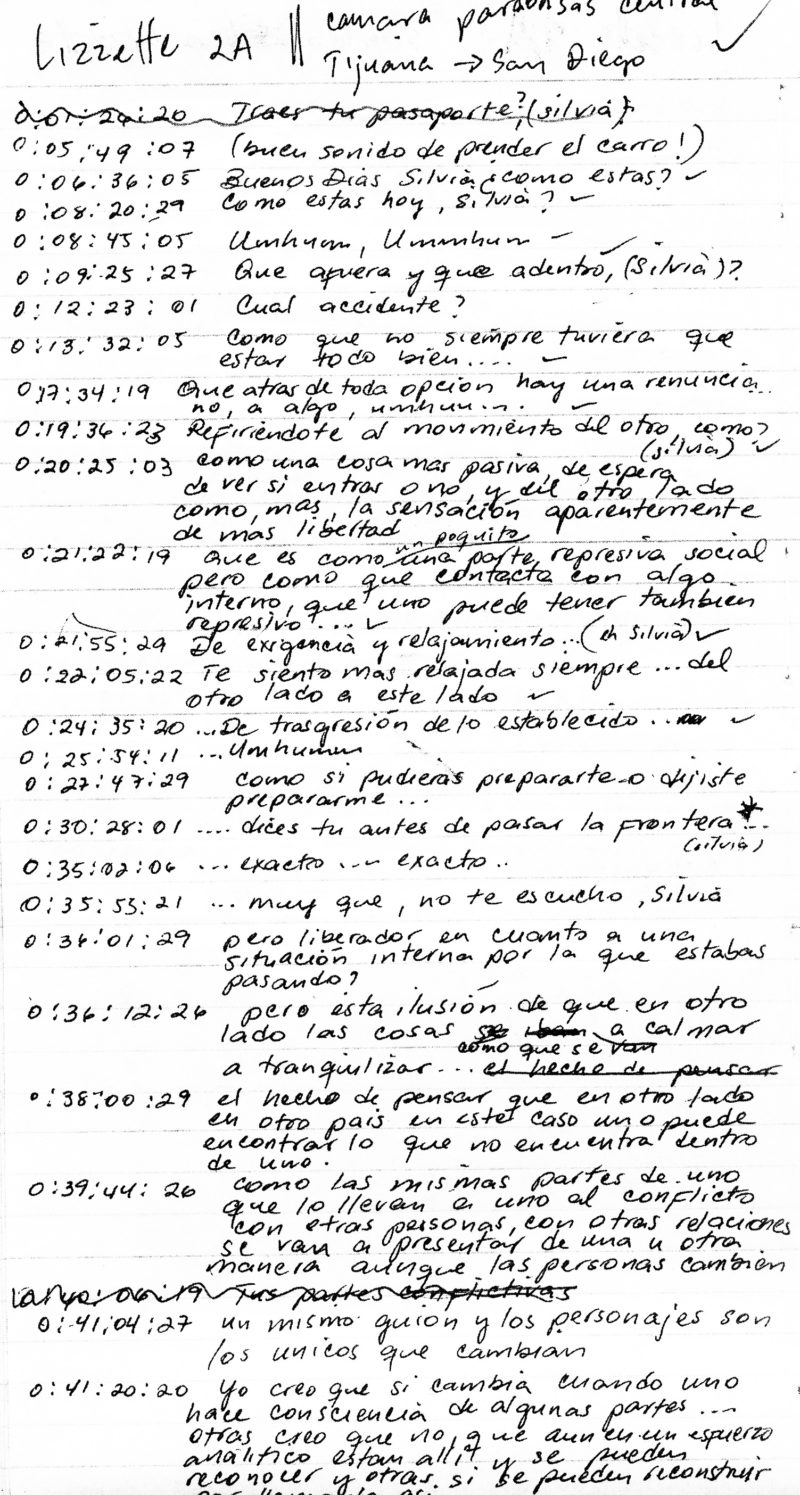 Lizzette 2A || camara parabrisas central
Tijuana → San Diego
0:01:20:20 Traes tu pasaporte? (silvia)
0:05:49:07 (buen sonido de prender el carro!)
0:06:36:05 Buenos Dias Silvia ¿como estas?
0:08:20:29 Como estas hoy, Silvia?
0:08:45:05 Umhum, Ummhum
0:09:25:27 Que afuera y que adentro, (Silvia)?
0:12:23:01 Cual accidente?
0:13:32:05 Como que no siempre tuviera que
estar todo bien....
0:17:34:19 Que atras de toda opcion hay una renuncia
no, a algo, umhum...
0:19:36:23 Refiriéndote al movimiento del otro, como?
(silvia)
0:20:25:03 como una cosa mas pasiva, de espera
de ver si entras o no, y del otro lado
como, mas, la sensación aparentemente
de mas libertad
un poquito
0:21:22:19 que es como una parte represiva social
pero como que contacta con algo
interno, que uno puede tener tambien
represivo...
0:21:55:29 De exigencia y relajamiento...(eh Silvia)
0:22:05:22 Te siento mas relajada siempre ... del
otro lado a este lado
0:24:35:20 ...De trasgresión de lo establecido ...
0:25:54:11 ...Umhumm
0:27:47:29 como si pudieras prepararte o dijiste
prepararme...
0:30:28:01 .... dices tu antes de pasar la frontera...
(silvia)
0:35:02:06 ... exacto ... exacto..
0:35:53:21 ... muy que, no te escucho, Silvia
0:36:01:29 pero liberador en cuanto a una
situación interna por la que estabas
pasando?
0:36:12:26 pero esta ilusión de que en otro
lado las cosas se iban a calmar
como que se van
a tranquilizar... el hecho de pensar
0:38:00:29 el hecho de pensar que en otro lado
en otro pais en este caso uno puede
encontrar lo que no encuentra dentro
de uno.
0:39:44:26 como las mismas partes de uno
que lo llevan a uno al conflicto
con otras personas, con otras relaciones
se van a presentar de una u otra
manera aunque las personas cambien
40:06:19 Tus partes conflictivas
0:41:04:27 un mismo guión y los personajes son
los unicos que cambian
0:41:20:20 Yo creo que si cambia cuando uno
hace consciencia de algunas partes....
otras creo que no, que aun en un esfuerzo
analitico estan alli y se pueden
reconocer y otras si se pueden reconstruir